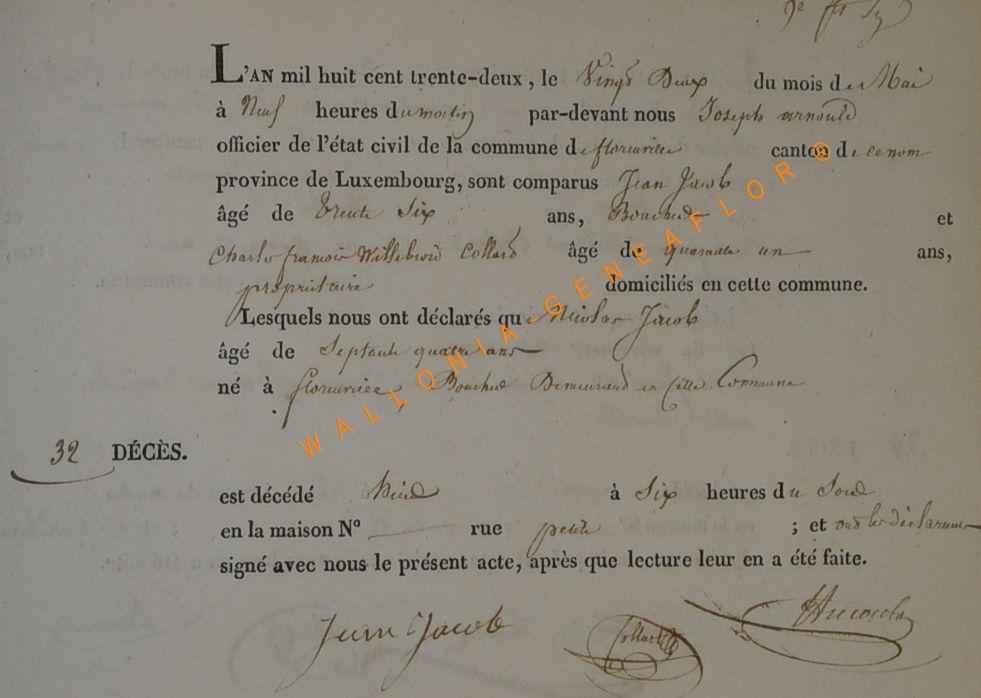 L'AN mil huit cent trente-deux, le Vingt Deux du mois de Mai
à Neuf heures du matin par-devant nous Joseph arnould
officier de l'état civil de la commune de florenville canton de ce nom
province de Luxembourg, sont comparus Jean Jacob
âgé de trente Six ans, Boucher et
Charles françois Willebrord Collard âgé de quarante un ans,
propriétaire domiciliés en cette commune.
Lesquels nous ont déclarés que Nicolas Jacob
âgé de Septante quatre ans
né à florenville Boucher Demeurand en Cette Commune
32 DÉCÈS.
est décédé à Six heures du Soir
en la maison N° rue petite ; et ont les déclarants
signé avec nous le présent acte, après que lecture leur en a été faite.
Jean Jacob Collard
WALLONIA-GENEAFLOR®